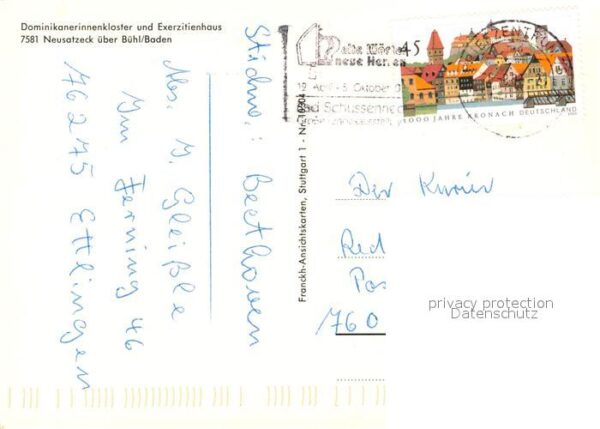 Dominikanerinnenkloster und Exerzitienhaus
7581 Neusatzeck über Bühl/Baden
Stichw.: Beethoven
Abs. J. Gleißle
Im Ferning 46
76275 Ettlingen
Franckh-Ansichtskarten, Stuttgart 1 - Nr.
alte Klöster
neue Herren
Bad Schussenried
45
1000 JAHRE KRONACH DEUTSCHLAND
Der Kurier
Red
Pos
760
privacy protection
Datenschutz